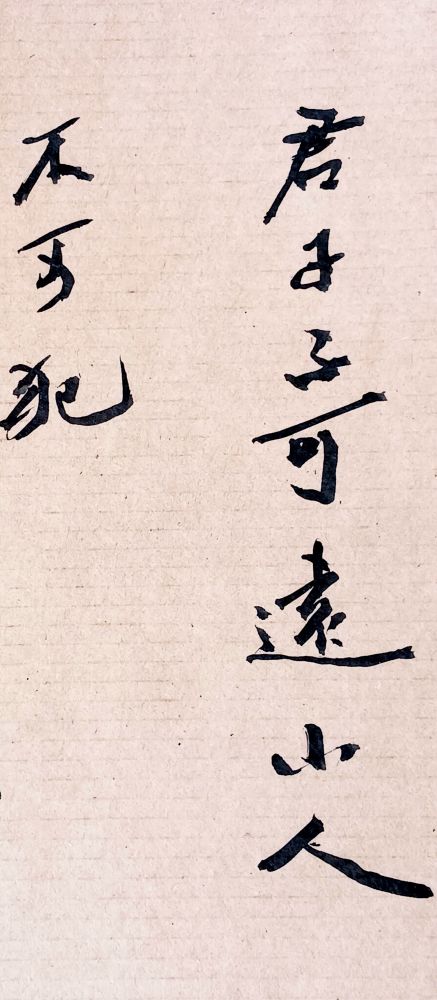 君子不可遠小人
不可犯